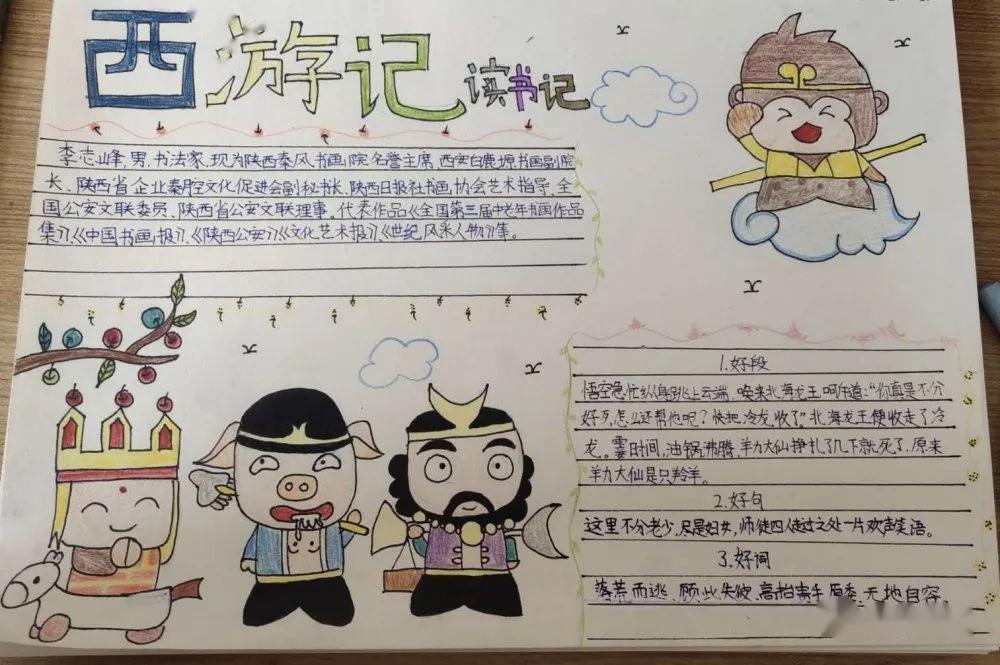 西游记 读书记
李志峰,男,书法家,现为陕西秦风书画院名誉主席,西安白鹿塬书画副院
长、陕西省企业秦腔文化促进会副秘书长、陕西日报社书画协会艺术指导、全
国公安文联委员、陕西省公安文联理事。代表作品《全国第三届中老年书画作品
集》《中国书画报》《陕西公安》《文化艺术报》《世纪风采人物》等。
1.好段
悟空急忙纵身跳上云端,唤来北海龙王,呵斥道:“你真是不分
好歹,怎么还帮他呢?快把冷龙收了”。北海龙王便收走了冷
龙。霎时间,油锅沸腾,羊力大仙挣扎了几下就死了,原来
羊力大仙是只羚羊。
2.好句
这里不分老少,尽是妇女,师徒四人走过之处一片欢声笑语。
3.好词
落荒而逃、顾此失彼、高抬贵手 无地自容。